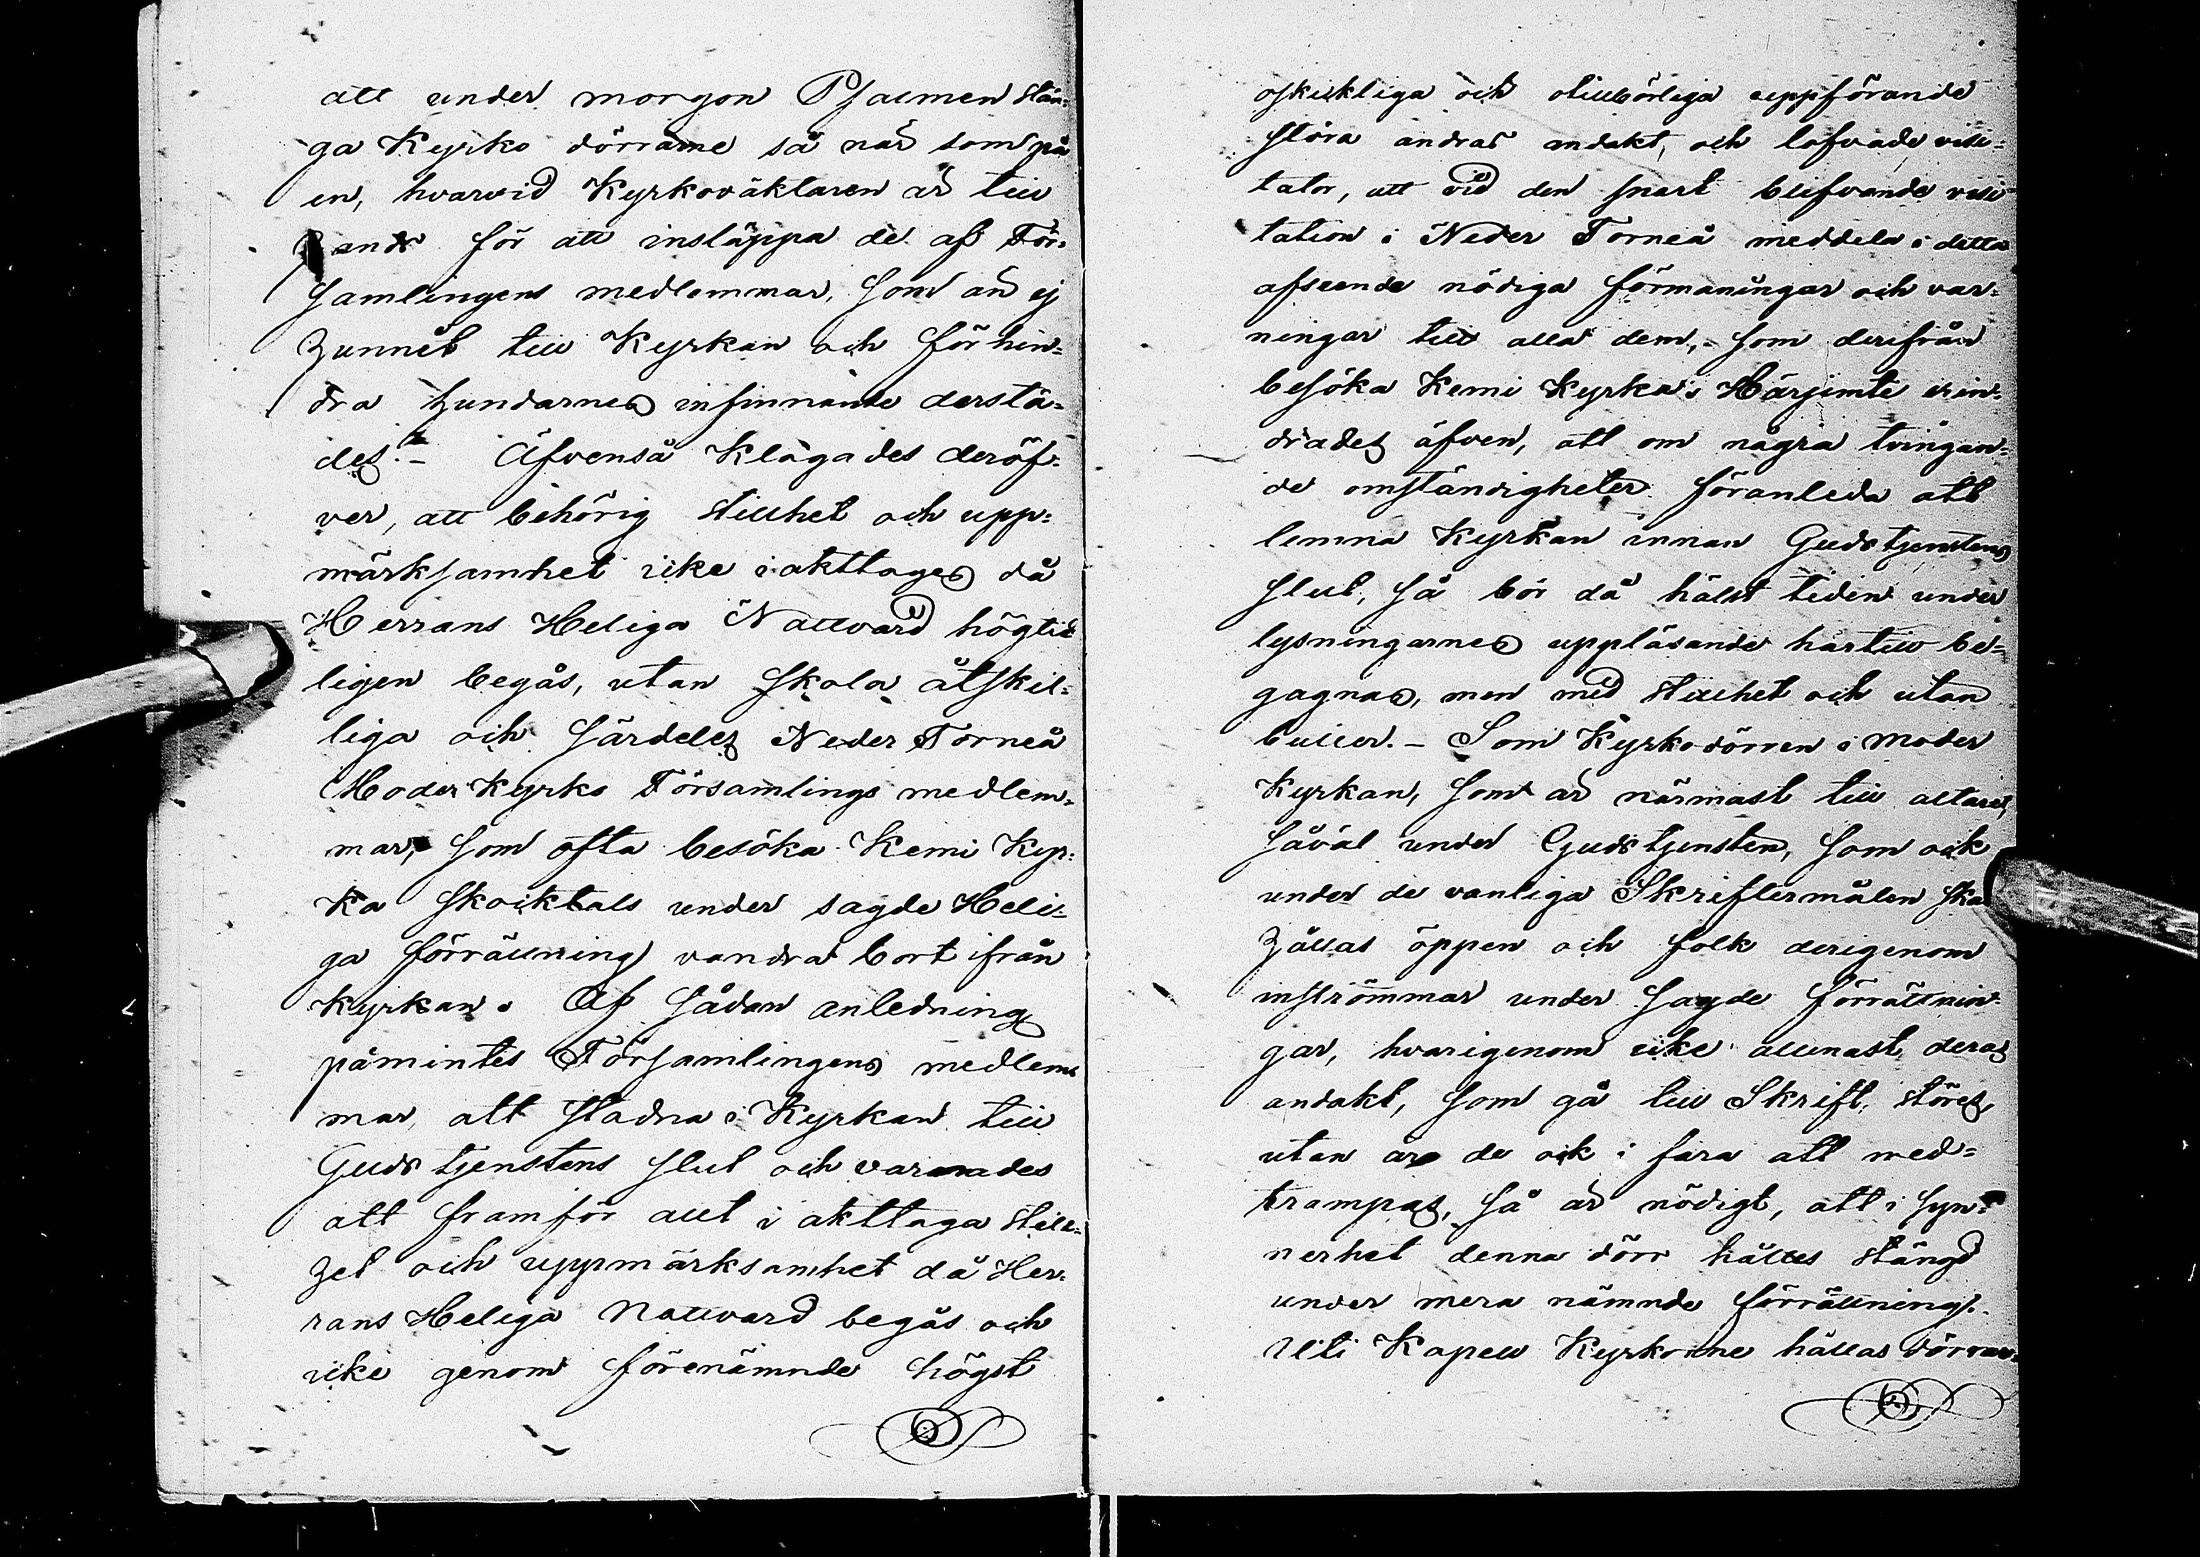 att under morgon Psalmen stän-
ga Kyrko dörrarne så när som på
en, hvarvid Kyrkoväktaren är till
hands för att insläppa de af För-
samlingens medlemmar, som än ej
hunnit till Kyrkan och förhin-
dra hundarnes infinnande derstä-
des. – Äfvenså klagades deröf-
ver, att behörig stillhet och upp-
märksamhet icke iakttages då
Herrans Heliga Nattvard högtid
ligen begås, utan skola åtskil-
liga och särdeles Neder Torneå
Moder Kyrko Församlings medlem-
mar, som ofta besöka Kemi Kyr-
ka skocktals under sagde Heli-
ga förrättning vandra bort ifrån
Kyrkan. Af sådan anledning
påmintes Församlingens medlem
mar, att stadna i Kyrkan till
Gudstjenstens slut och varnades
att framför allt i akttaga still-
het och uppmärksamhet då Her-
rans Heliga Nattvard begås och
icke genom förenämnde högst
oskickliga och otillbörliga uppförande
störa andras andakt, och lofvade visi-
tator, att vid den snart blifvande visi
tation i Neder Torneå meddela i detta
afseende nödiga förmaningar och var-
ningar till alla dem, som derifrån
besöka Kemi Kyrka. Härjemte erin-
drades äfven, att om några tvingan-
de omständigheter föranleda att
lemna Kyrkan innan Gudstjenstens
slut, så bör då hälst tiden under
lysningarnes uppläsande härtill be-
gagnas, men med stillhet och utan
buller. – Som Kyrkodörren i Moder
Kyrkan, som är närmast till altaret,
såväl under Gudstjensten, som ock
under de vanliga Skriftermålen ska
hållas öppen och folk derigenom
inströmmar under sagde förrättnin-
gar, hvarigenom icke allenast deras
andakt, som gå till Skrift, störes,
utan äro de ock i fara att ned-
trampas, så är nödigt, att i syn-
nerhet denna dörr hålles stängd
under mera nämnde förrättning.
Uti Kapell Kyrkorne hållas dörrar-